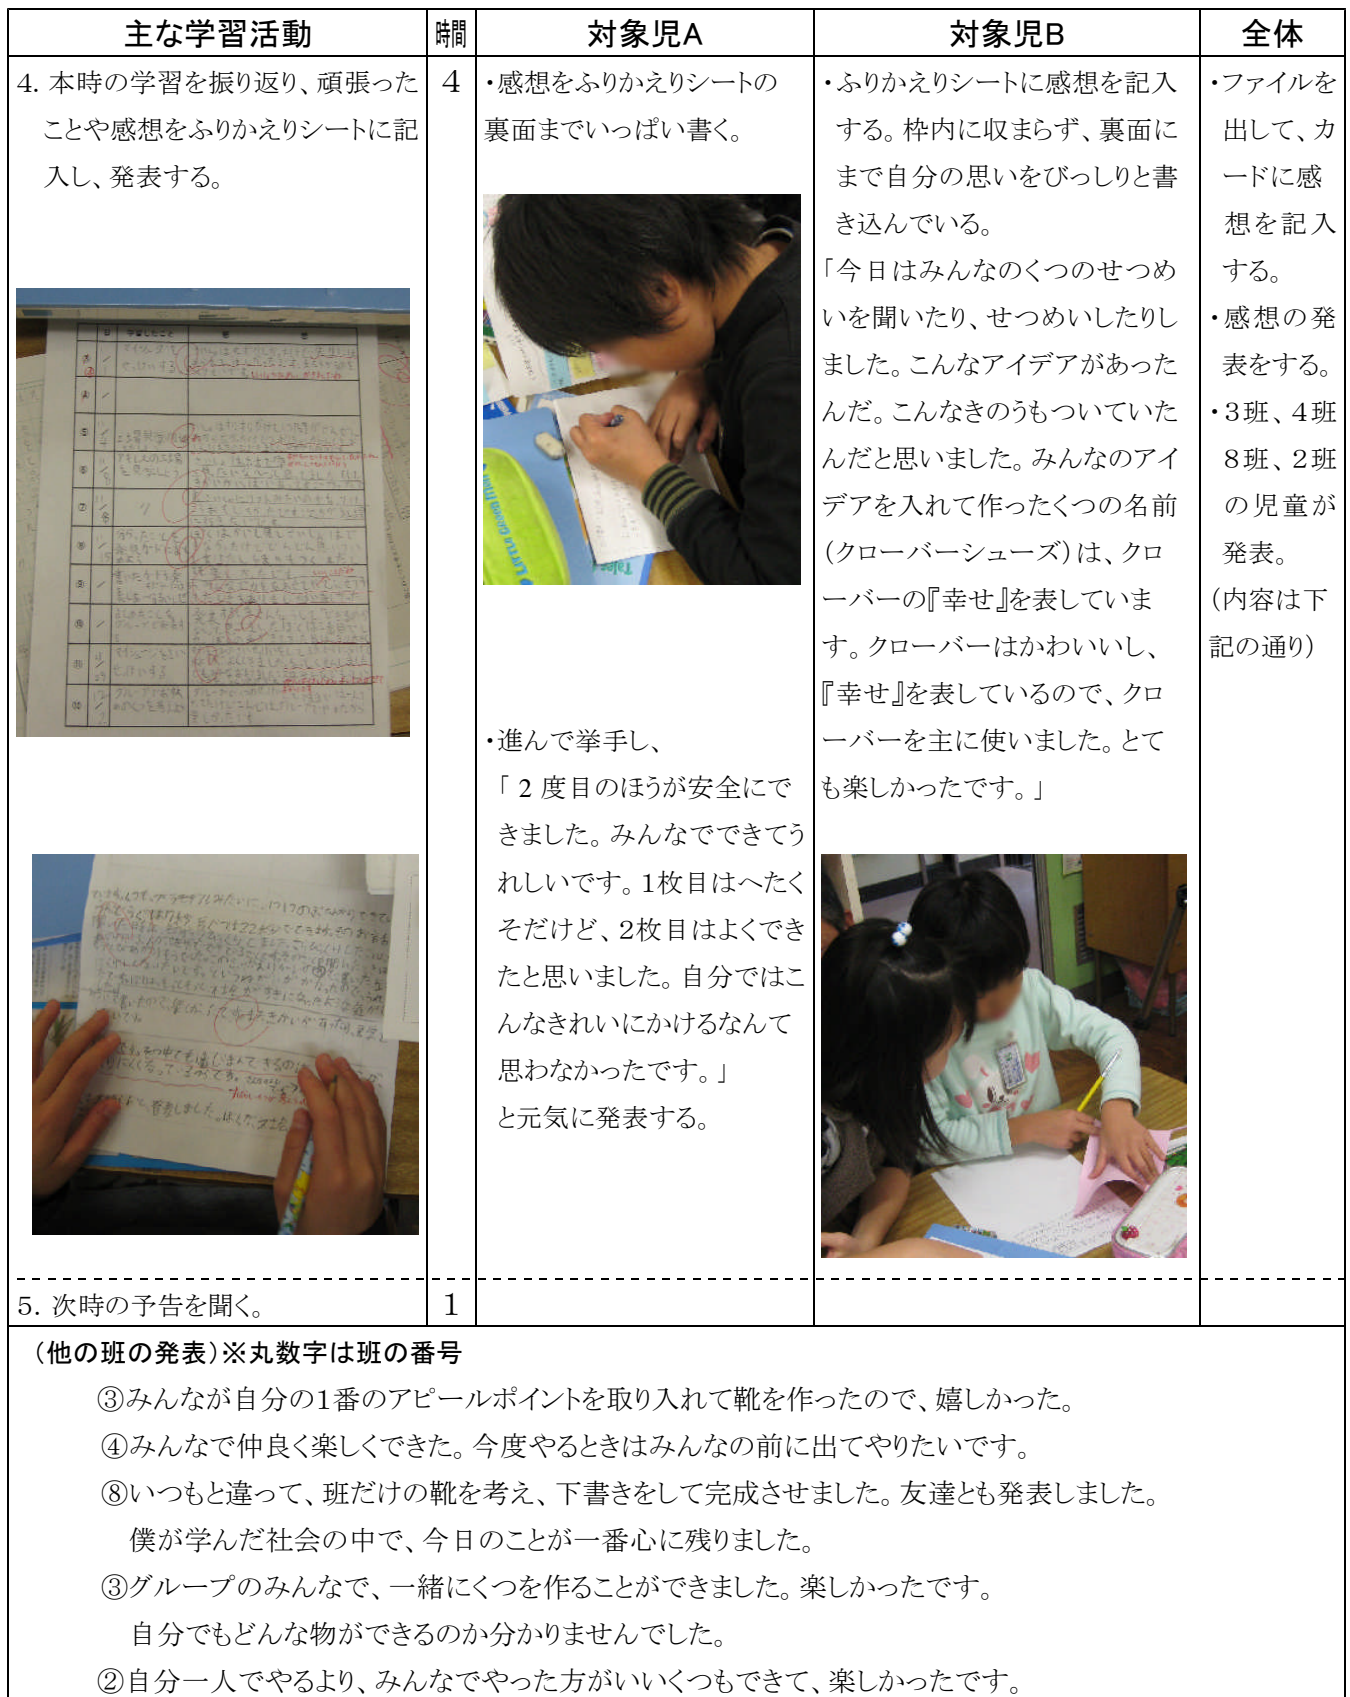 主な学習活動
時間
対象児A
対象児B
全体
4．本時の学習を振り返り、頑張った
ことや感想をふりかえりシートに記
入し、発表する。
4
・感想をふりかえりシートの
裏面までいっぱい書く。
・進んで挙手し、
「２度目のほうが安全にで
きました。みんなでできてう
れしいです。１枚目はへたく
そだけど、２枚目はよくでき
たと思いました。自分ではこ
んなきれいにかけるなんて
思わなかったです。」
と元気に発表する。
・ふりかえりシートに感想を記入
する。枠内に収まらず、裏面に
まで自分の思いをびっしりと書
き込んでいる。
「今日はみんなのくつのせつめ
いを聞いたり、せつめいしたりし
ました。こんなアイデアがあった
んだ。こんなきのうもついていた
んだと思いました。みんなのアイ
デアを入れて作ったくつの名前
（クローバーシューズ）は、クロ
ーバーの『幸せ』を表していま
す。クローバーはかわいいし、
『幸せ』を表しているので、クロ
ーバーを主に使いました。とて
も楽しかったです。」
・ファイルを
出して、カ
ードに感
想を記入
する。
・感想の発
表をする。
・3班、4班
8班、2班
の児童が
発表。
（内容は下
記の通り）
5．次時の予告を聞く。
1
（他の班の発表）※丸数字は班の番号
③みんなが自分の１番のアピールポイントを取り入れて靴を作ったので、嬉しかった。
④みんなで仲良く楽しくできた。今度やるときはみんなの前に出てやりたいです。
⑧いつもと違って、班だけの靴を考え、下書きをして完成させました。友達とも発表しました。
僕が学んだ社会の中で、今日のことが一番心に残りました。
③グループのみんなで、一緒にくつを作ることができました。楽しかったです。
自分でもどんな物ができるのか分かりませんでした。
②自分一人でやるより、みんなでやった方がいいくつもできて、楽しかったです。